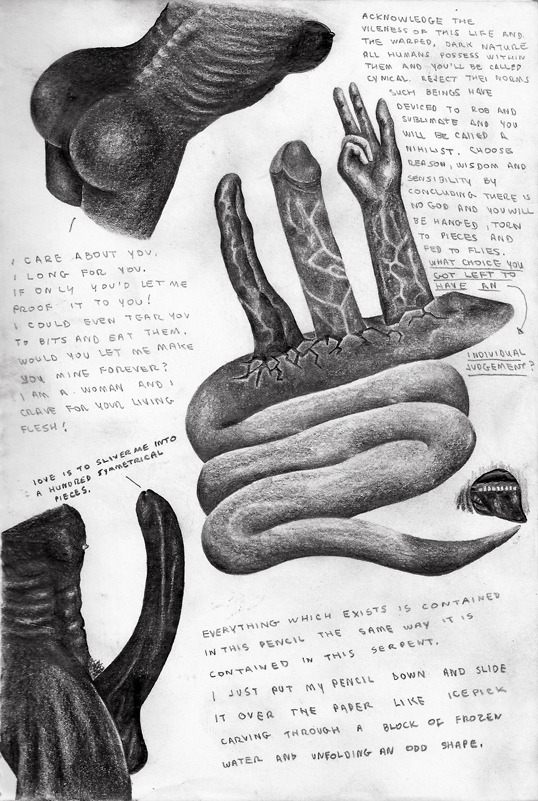 ACKNOWLEDGE THE
VILENESS OF THIS LIFE AND
THE WARPED, DARK NATURE
ALL HUMANS POSSESS WITHIN
THEM AND YOU'LL BE CALLED
CYNICAL. REJECT THEI NORMS
SUCH BEINGS HAVE
DEVICED TO ROB AND
SUBLIMATE AND YOU
WILL BE CALLED A
NIHILIST. CHOOSE
REASON, WISDOM AND
SENSIBILITY BY
CONCLUDING THERE IS
NO GOD AND YOU WILL
BE HANGED, TORN
TO PIECES AND
FED TO FLIES.
WHAT CHOICE YOU
GOT LEFT TO
HAVE AN
INDIVIDUAL
JUDGEMENT?
I CARE ABOUT YOU.
I LONG FOR YOU.
IF ONLY YOU'D LET ME
PROOF IT TO YOU!
I COULD EVEN TEAR YOU
TO BITS AND EAT THEM.
WOULD YOU LET ME MAKE
YOU MINE FOREVER?
I AM A WOMAN AND I
CRAVE FOR YOUR LIVING
FLESH!
LOVE IS TO SLIVER ME INTO
A HUNDRED SYMMETRICAL
PIECES.
EVERYTHING WHICH EXISTS IS CONTAINED
IN THIS PENCIL THE SAME WAY IT IS
CONTAINED IN THIS SERPENT.
I JUST PUT MY PENCIL DOWN AND SLIDE
IT OVER THE PAPER LIKE ICEPICK
CARVING THROUGH A BLOCK OF FROZEN
WATER AND UNFOLDING AN ODD SHAPE.